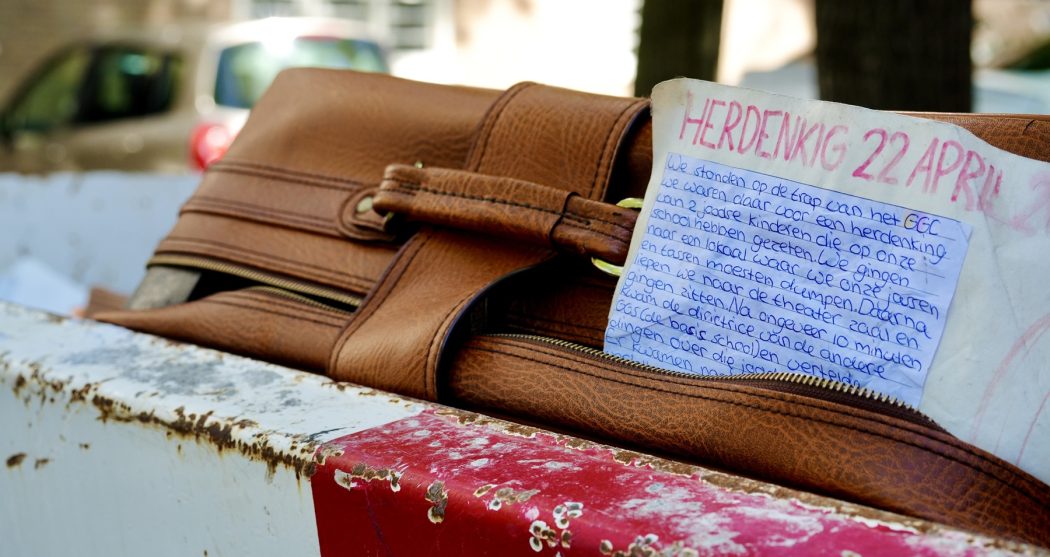 HERDENKIG 22 APRIL
We stonden op de trap van het GGC
we waren daar voor een herdenking
van 2 joodse kinderen die op onze
school hebben gezeten. We gingen
naar een lokaal waar we onze jassen
en tassen moesten dumpen. Daarna
liepen we naar de theater zaal en
gingen zitten. Na ongeveer 10 minuten
kwam de dirictrice van de andere
basisschool en
gingen over die
kwamen